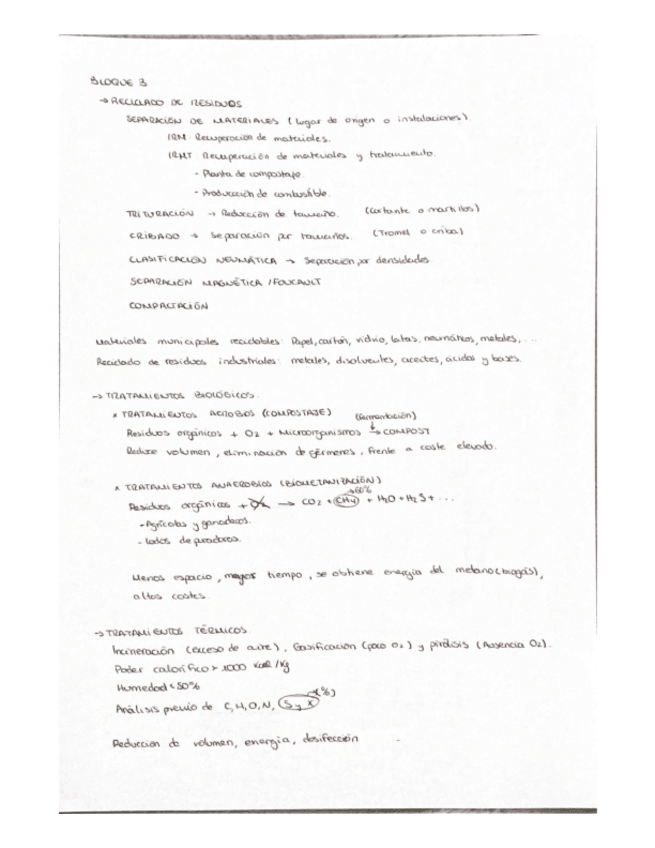 BLOQUE 3
→ RECICLADO DE RESIDUOS
SEPARACIÓN DE MATERIALES (lugar de origen o instalaciones).
IRM. Recuperación de materiales.
IRMT Recuperación de materiales y tratamiento.
- Planta de compostaje.
- Producción de combustible.
TRITURACIÓN → Reducción de tamaño. (Cortante o martillos)
CRIBADO → Separación por tamaños. (Tromel o criba)
CLASIFICACIÓN NEUMÁTICA → Separación por densidades.
SEPARACIÓN MAGNÉTICA / FOUCAULT
COMPACTACIÓN
Materiales municipales reciclables: Papel, cartón, vidrio, latas, neumáticos, metales, ...
Reciclado de residuos industriales: metales, disolventes, aceites, ácidos y bases.
→ TRATAMIENTOS BIOLÓGICOS.
* TRATAMIENTOS AEROBIOS (COMPOSTAJE) (fermentación)
Residuos orgánicos + O2 + Microorganismos → COMPOST
Reduce volumen, eliminación de gérmenes. Frente a coste elevado.
* TRATAMIENTOS ANAEROBIOS (BIOMETANIZACIÓN)
→60%
Residuos orgánicos + O2 → CO2 + CH4 + H2O + H2S + ...
- Agrícolas y ganaderos.
- lodos de
Menos espacio, mayor tiempo, se obtiene energía del metano (biogás),
altos costes.
→ TRATAMIENTOS TÉRMICOS
Incineración (exceso de aire), Gasificación (poco O2) y pirólisis (Ausencia O2).
Poder calorífico > 1000 Kcal/Kg
Humedad < 50%
(%)
Análisis previo de C, H, O, N, S y X
Reducción de volumen, energía, desifección